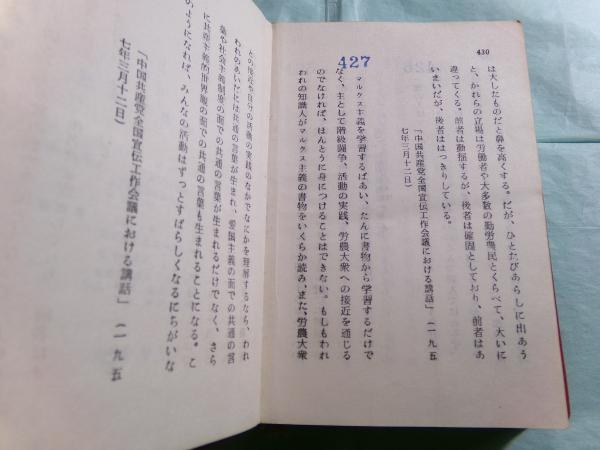 430
は大したものだと鼻を高くする。だが、ひとたびあらしに出あう
と、かれらの立場は労働者や大多数の勤労農民とくらべて、大いに
違ってくる。前者は動揺するが、後者は確固としており、前者はあ
いまいだが、後者ははっきりしている。
「中国共産党全国宣伝工作会議における講話」(一九五
七年三月十二日)
427
マルクス主義を学習するばあい、たんに書物から学習するだけで
なく、主として階級闘争、活動の実践、労農大衆への接近を通じる
のでなければ、ほんとうに身につけることはできない。もしもわれ
われの知識人がマルクス主義の書物をいくらか読み、また、労農大衆
との接近や自分の活動の実践のなかでなにかを理解するなら、われ
われのあいだには共通の言葉が生まれ、愛国主義の面での共通の言
葉や社会主義制度の面での共通の言葉が生まれるだけでなく、さら
に共産主義的世界観の面での共通の言葉も生まれることになる。こ
のようになれば、みんなの活動はずっとすばらしくなるにちがいな
「中国共産党全国宣伝工作会議における講話」(一九五
七年三月十二日)